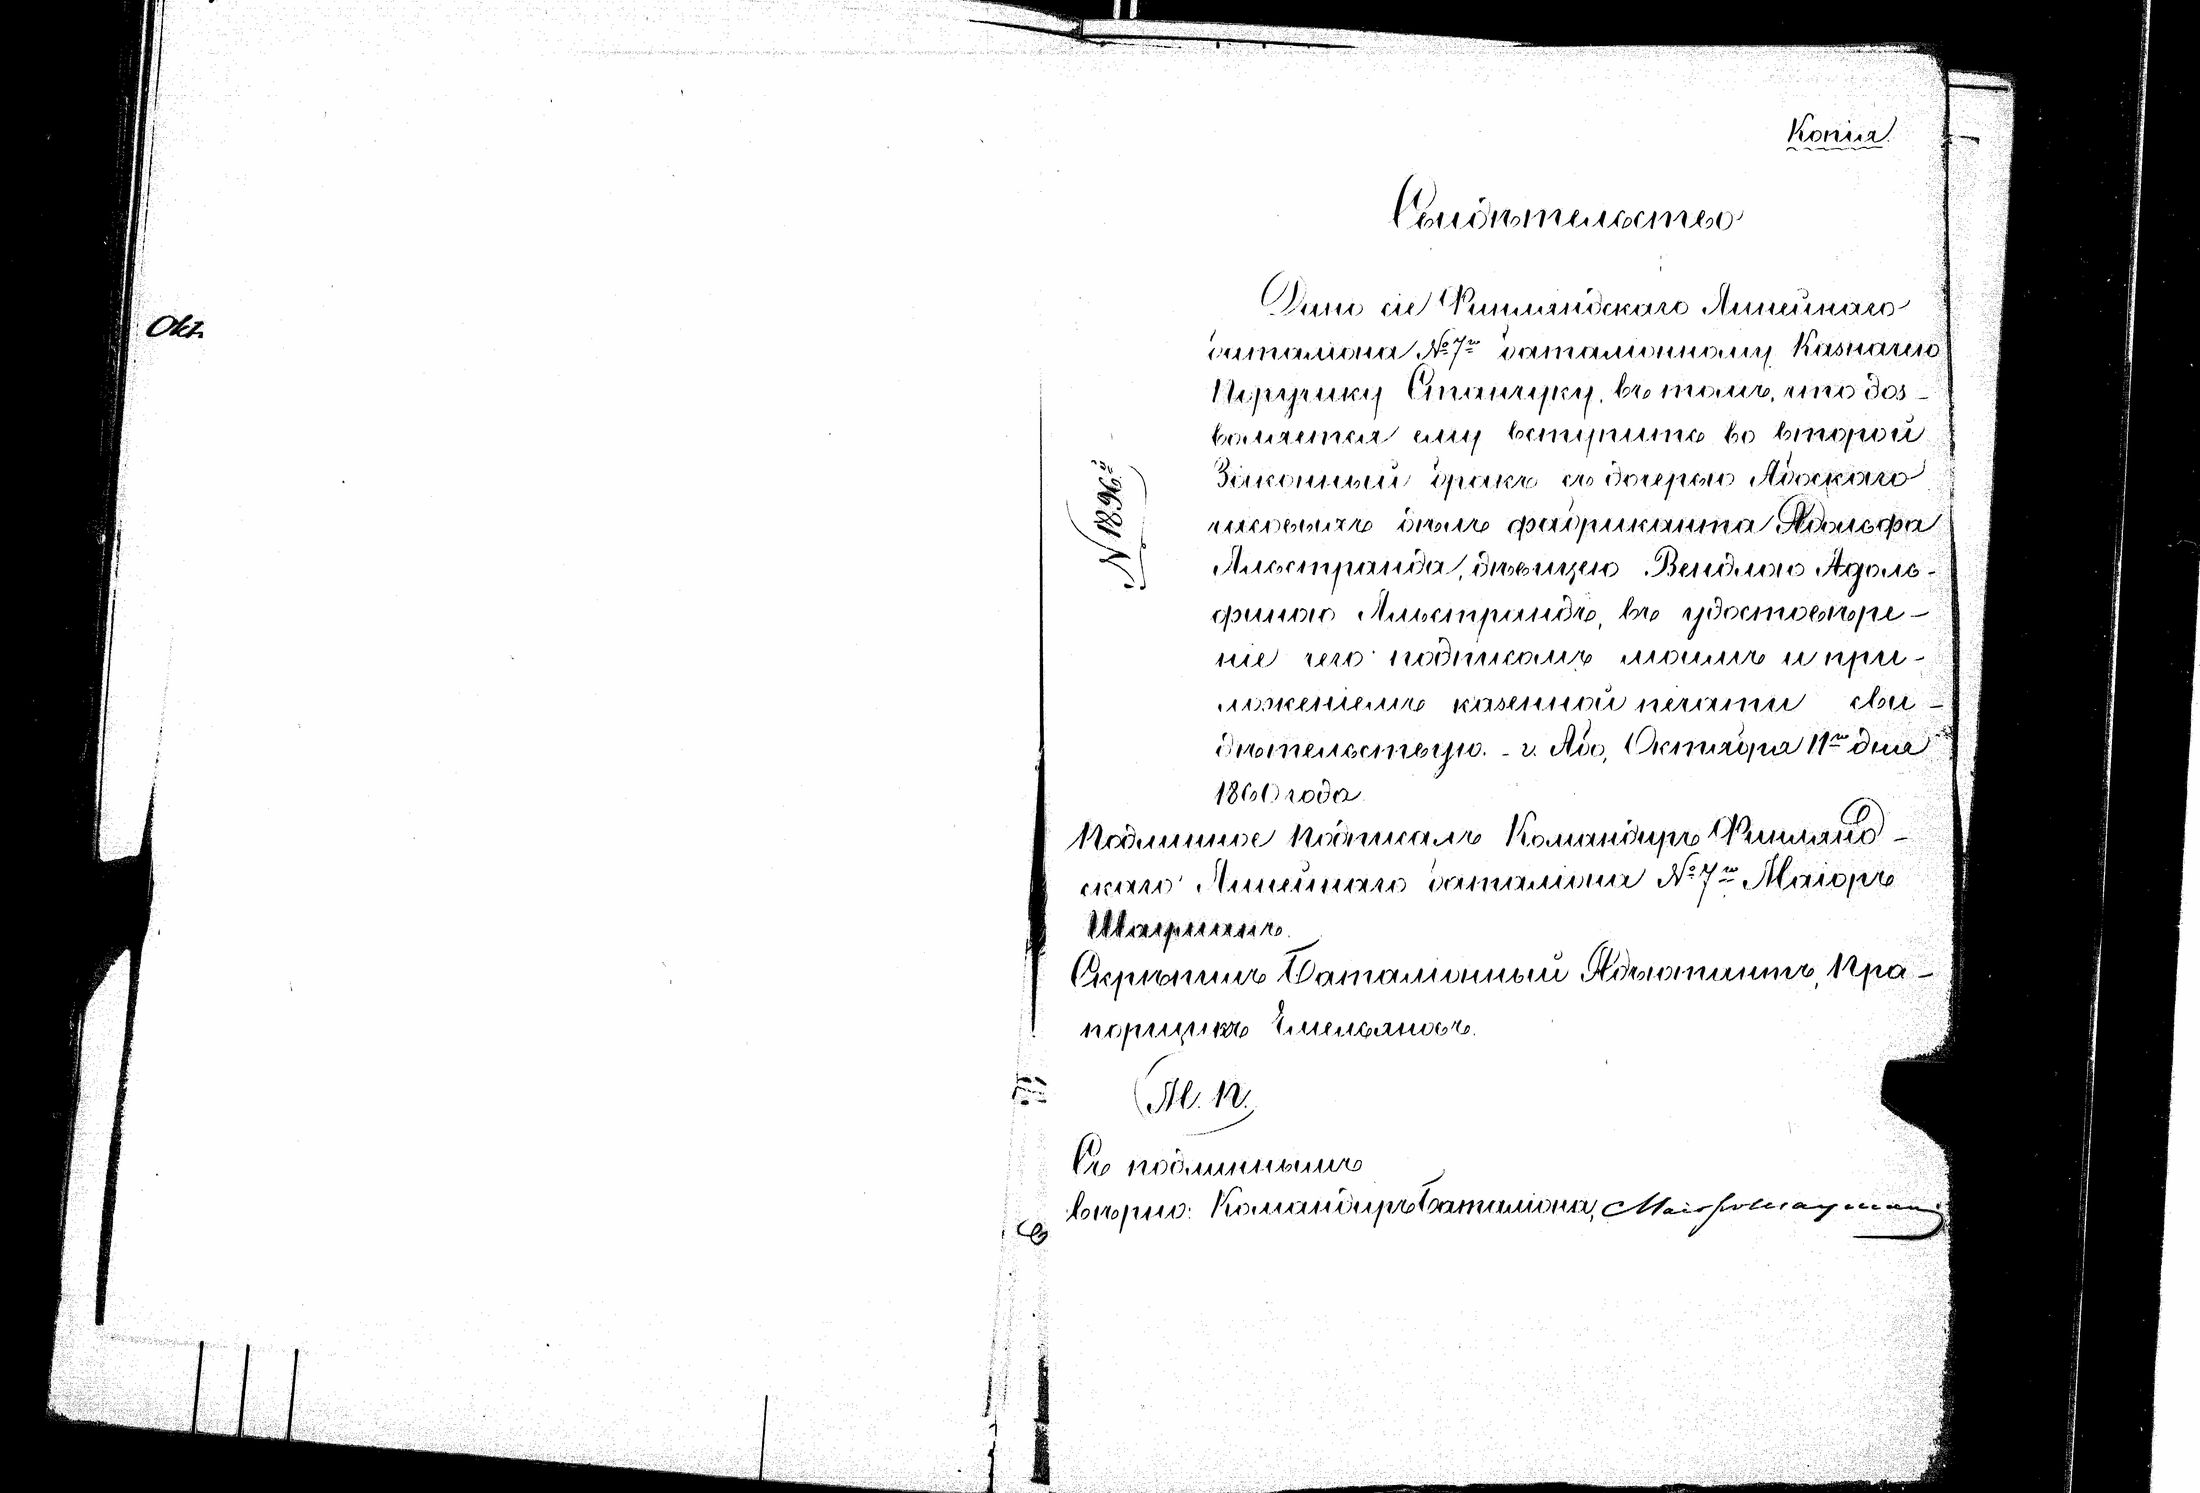 Okt.
Копія.
Свидѣтельство
Дано сіе Финляндскаго Линейнаго
баталіона №7го баталіонному Казначею
Поручику Станчуку, въ томъ, что доз-
воляется ему вступить во второй
Законный бракъ съ дочерью Абоскаго
часовыхъ дѣлъ фабриканта Адольфа
Альстранда, дѣвицею Вендлою Адоль-
финою Альстрандъ, въ удостовѣре-
ніе чего подписомъ моимъ и при-
ложеніемъ казенной печати сви-
дѣтельствую. - г. Або, Октября 11го дня
1860 года.
№ 1896й
Подлинное подписалъ Командиръ Финлянд-
скаго Линейнаго баталіона №7го Маіоръ
Скрѣпилъ Баталіонный Адъютантъ, Пра-
порщикъ Емельяновъ.
(М. П.)
Съ подлиннымъ
вѣрно: Командиръ Баталіона, Маіоръ